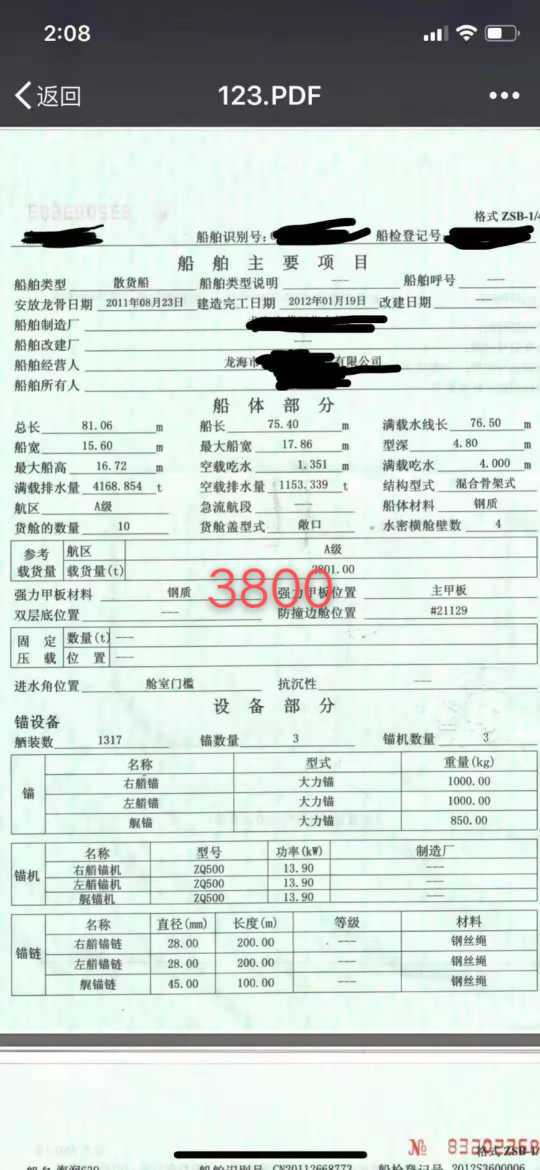 2:08
返回 123.PDF
格式 ZSB-1/4
船舶识别号: 船检登记号
船舶主要项目
船舶类型 散货船 船舶类型说明 --- 船舶呼号 ---
安放龙骨日期 2011年08月23日 建造完工日期 2012年01月19日 改建日期 ---
船舶制造厂
船舶改建厂 ---
船舶经营人 龙海市 有限公司
船舶所有人
船体部分
总长 81.06 m 船长 75.40 m 满载水线长 76.50 m
船宽 15.60 m 最大船宽 17.86 m 型深 4.80 m
最大船高 16.72 m 空载吃水 1.351 m 满载吃水 4.000 m
满载排水量 4168.854 t 空载排水量 1153.339 t 结构型式 混合骨架式
航区 A级 急流航段 --- 船体材料 钢质
货舱的数量 10 货舱盖型式 敞口 水密横舱壁数 4
参考 航区 A级
载货量 载货量(t) 3801.00
3800
强力甲板材料 钢质 强力甲板位置 主甲板
双层底位置 --- 防撞边舱位置 #21129
固定 数量(t) ---
压载 位置 ---
进水角位置 舱室门槛 抗沉性 ---
设备部分
锚设备
舾装数 1317 锚数量 3 锚机数量 3
锚 名称 型式 重量(kg)
右艏锚 大力锚 1000.00
左艏锚 大力锚 1000.00
艉锚 大力锚 850.00
锚机 名称 型号 功率(kW) 制造厂
右艏锚机 ZQ500 13.90 ---
左艏锚机 ZQ500 13.90 ---
艉锚机 ZQ500 13.90 ---
锚链 名称 直径(mm) 长度(m) 等级 材料
右艏锚链 28.00 200.00 --- 钢丝绳
左艏锚链 28.00 200.00 --- 钢丝绳
艉锚链 45.00 100.00 --- 钢丝绳
№
格式 ZSB-1/
船舶识别号 CN20112668773 船检登记号 2012S3600006